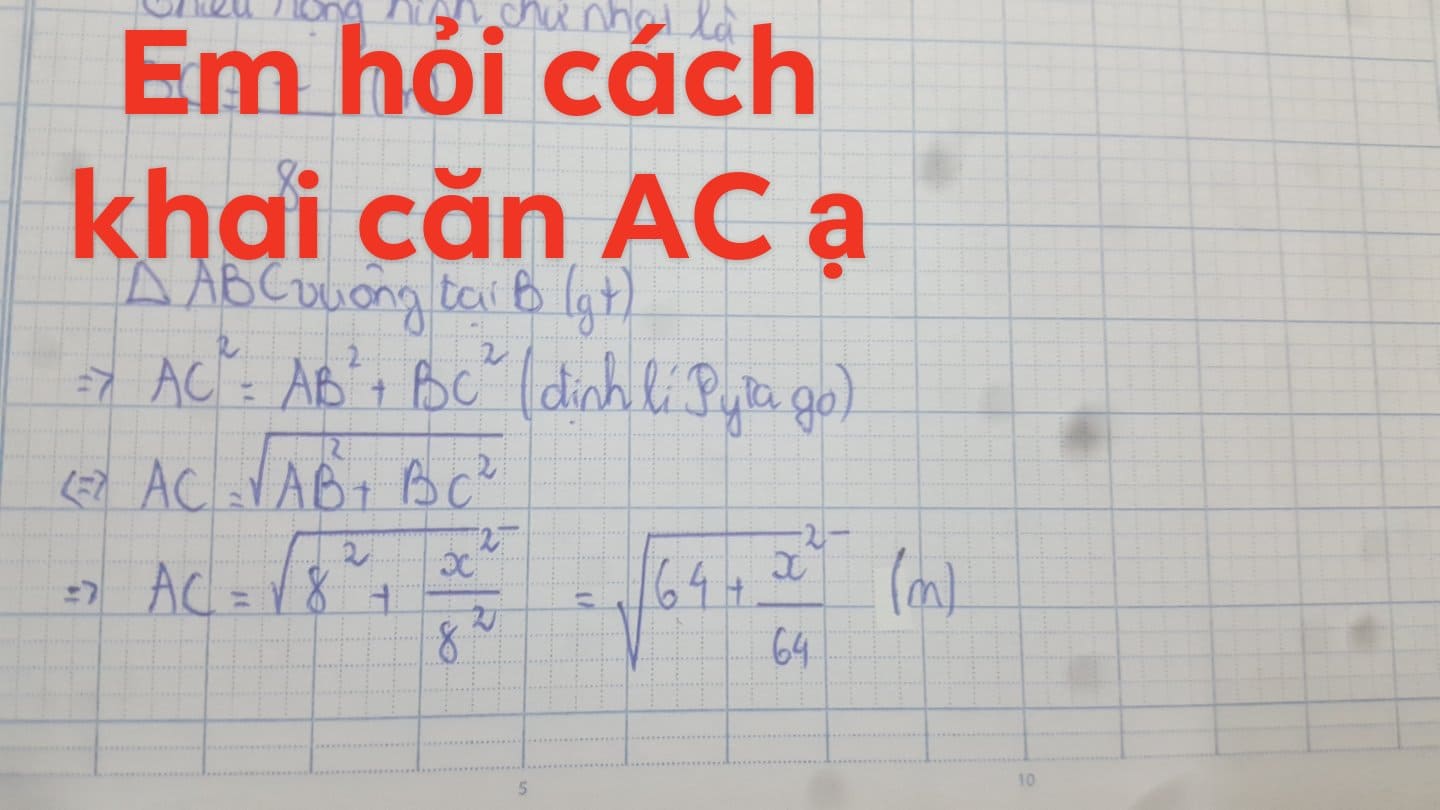 Chiều rộng hình chữ nhật là
Em hỏi cách
khai căn AC ạ
8
Δ ABC vuông tại B (gt)
=> AC² = AB² + BC² (định lí Pytago)
<=> AC = √AB² + BC²
=> AC = √8² + x²/8² = √64 + x²/64 (m)
5 10